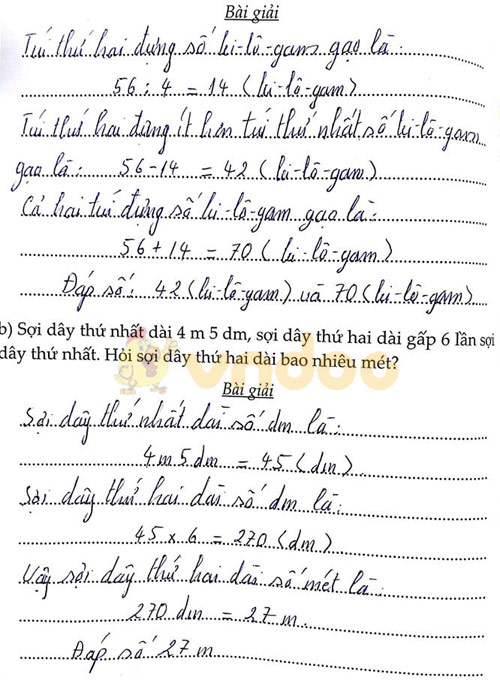 Bài giải
Túi thứ hai đựng số ki-lô-gam gạo là:
56 : 4 = 14 (ki-lô-gam)
Túi thứ hai đựng ít hơn túi thứ nhất số ki-lô-gam
gạo là: 56-14 = 42 (ki-lô-gam)
Cả hai túi đựng số ki-lô-gam gạo là:
56+14 = 70 (ki-lô-gam)
Đáp số: 42 (ki-lô-gam) và 70 (ki-lô-gam)
b) Sợi dây thứ nhất dài 4 m 5 dm, sợi dây thứ hai dài gấp 6 lần sợi
dây thứ nhất. Hỏi sợi dây thứ hai dài bao nhiêu mét?
vndoo
Bài giải
Sợi dây thứ nhất dài số dm là:
4m 5dm = 45 (dm)
Sợi dây thứ hai dài số dm là:
45 x 6 = 270 (dm)
Vậy sợi dây thứ hai dài số mét là:
270 dm = 27 m.
Đáp số 27 m